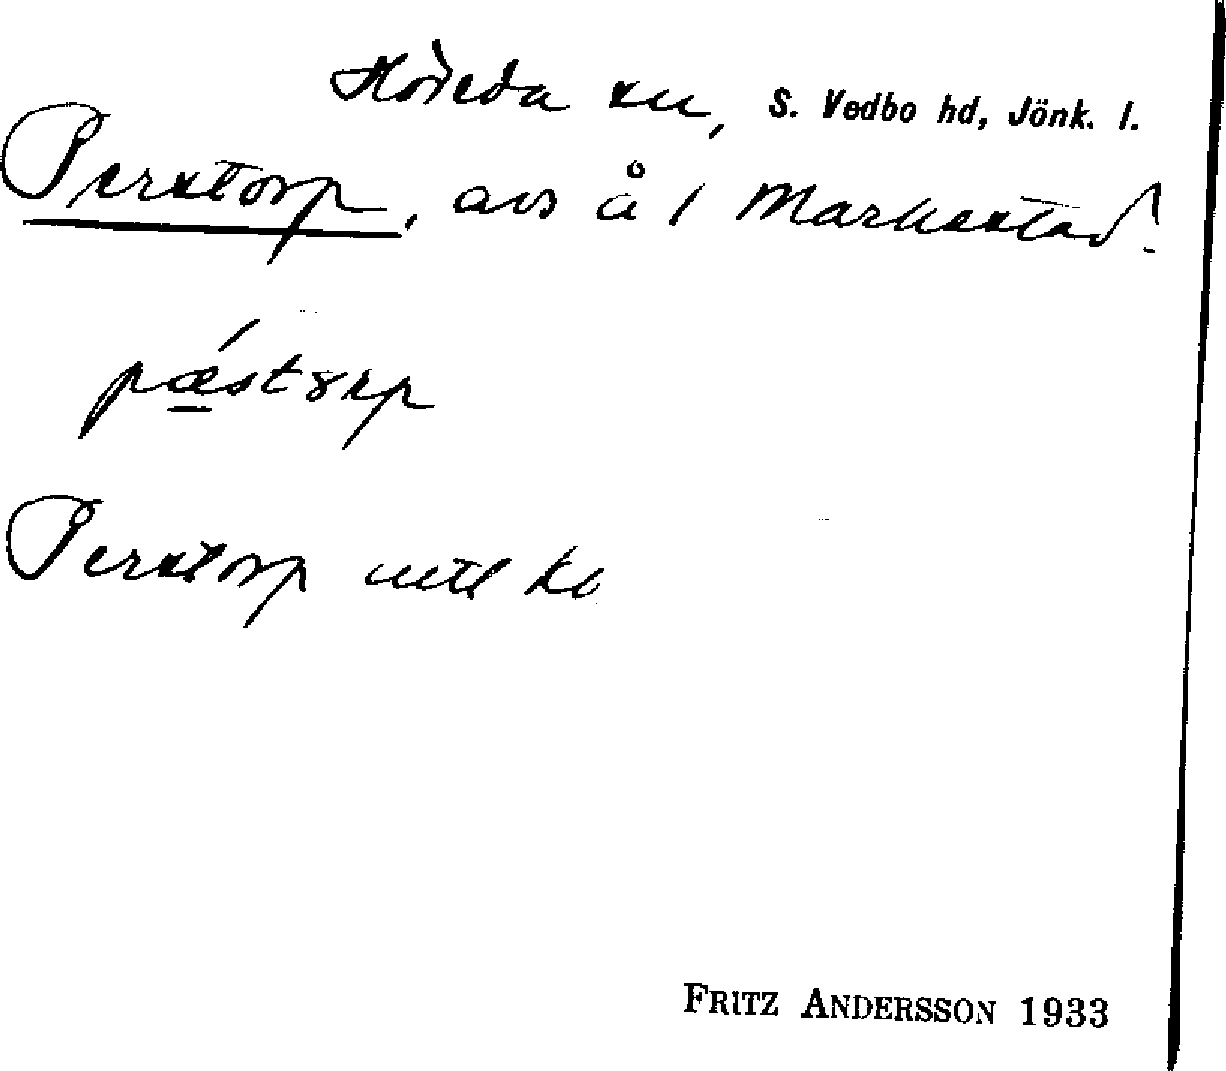 Höreda sn, S. Vedbo hd, Jönk. l.
Perstorp, avs å 1 Markestad.
pǽstɤrp
Perstorp
FRITZ ANDERSSON 1933